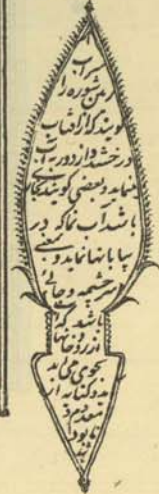 سراب
زمین شوره را
گویند که از آفتاب
درخشد و از دور به آب
میماند و بعضی گویند بخاری
باشد آب نما که در
بیابانها نماید و بمعنی
سرچشمه و جائی
باشد که
از رودخانها
بجوی می آید
و کنایه از
معدوم و
نابود
باشد